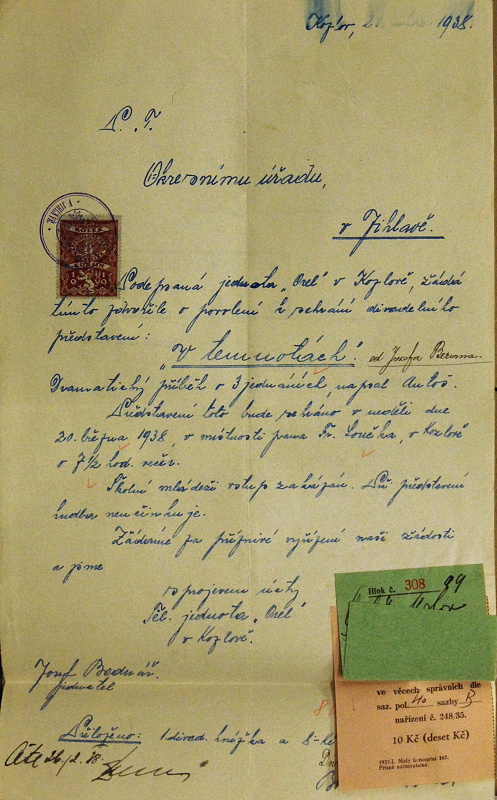 Kozlov, 1938.
P. T.
Okresnímu úřadu,
v Jihlavě.
JIHLAVA
KOLEK
5
Podepsaná jednota „Orel" v Kozlově, žádá
tímto zdvořile o povolení k sehrání divadelního
představení:
„V temnotách". od Josefa Berma.
Dramatický příběh o 3 jednáních, napsal Antoš.
Představení toto bude sehráno v neděli dne
20. března 1938, v místnosti pana Fr. Součka, v Kozlově
o 7 1/2 hod. večer.
Školní mládeži vstup zakázán. Při představení
hudba neúčinkuje.
Žádáme za příznivé vyřízení naší žádosti
a jsme
s projevem úcty
Těl. jednota „Orel"
v Kozlově.
Josef Bednář.
jednatel
Přiloženo: 1 divad. knížka a 8-
Blok č. 308 99
ve věcech správních dle
saz. pol. 40 sazby B
nařízení č. 248/35.
10 Kč (deset Kč)